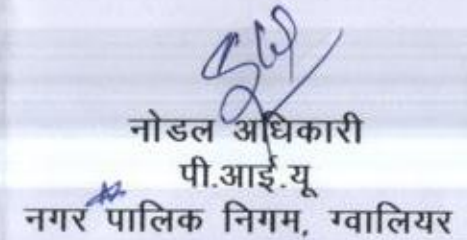 नोडल अधिकारी
पी.आई.यू
नगर पालिक निगम, ग्वालियर